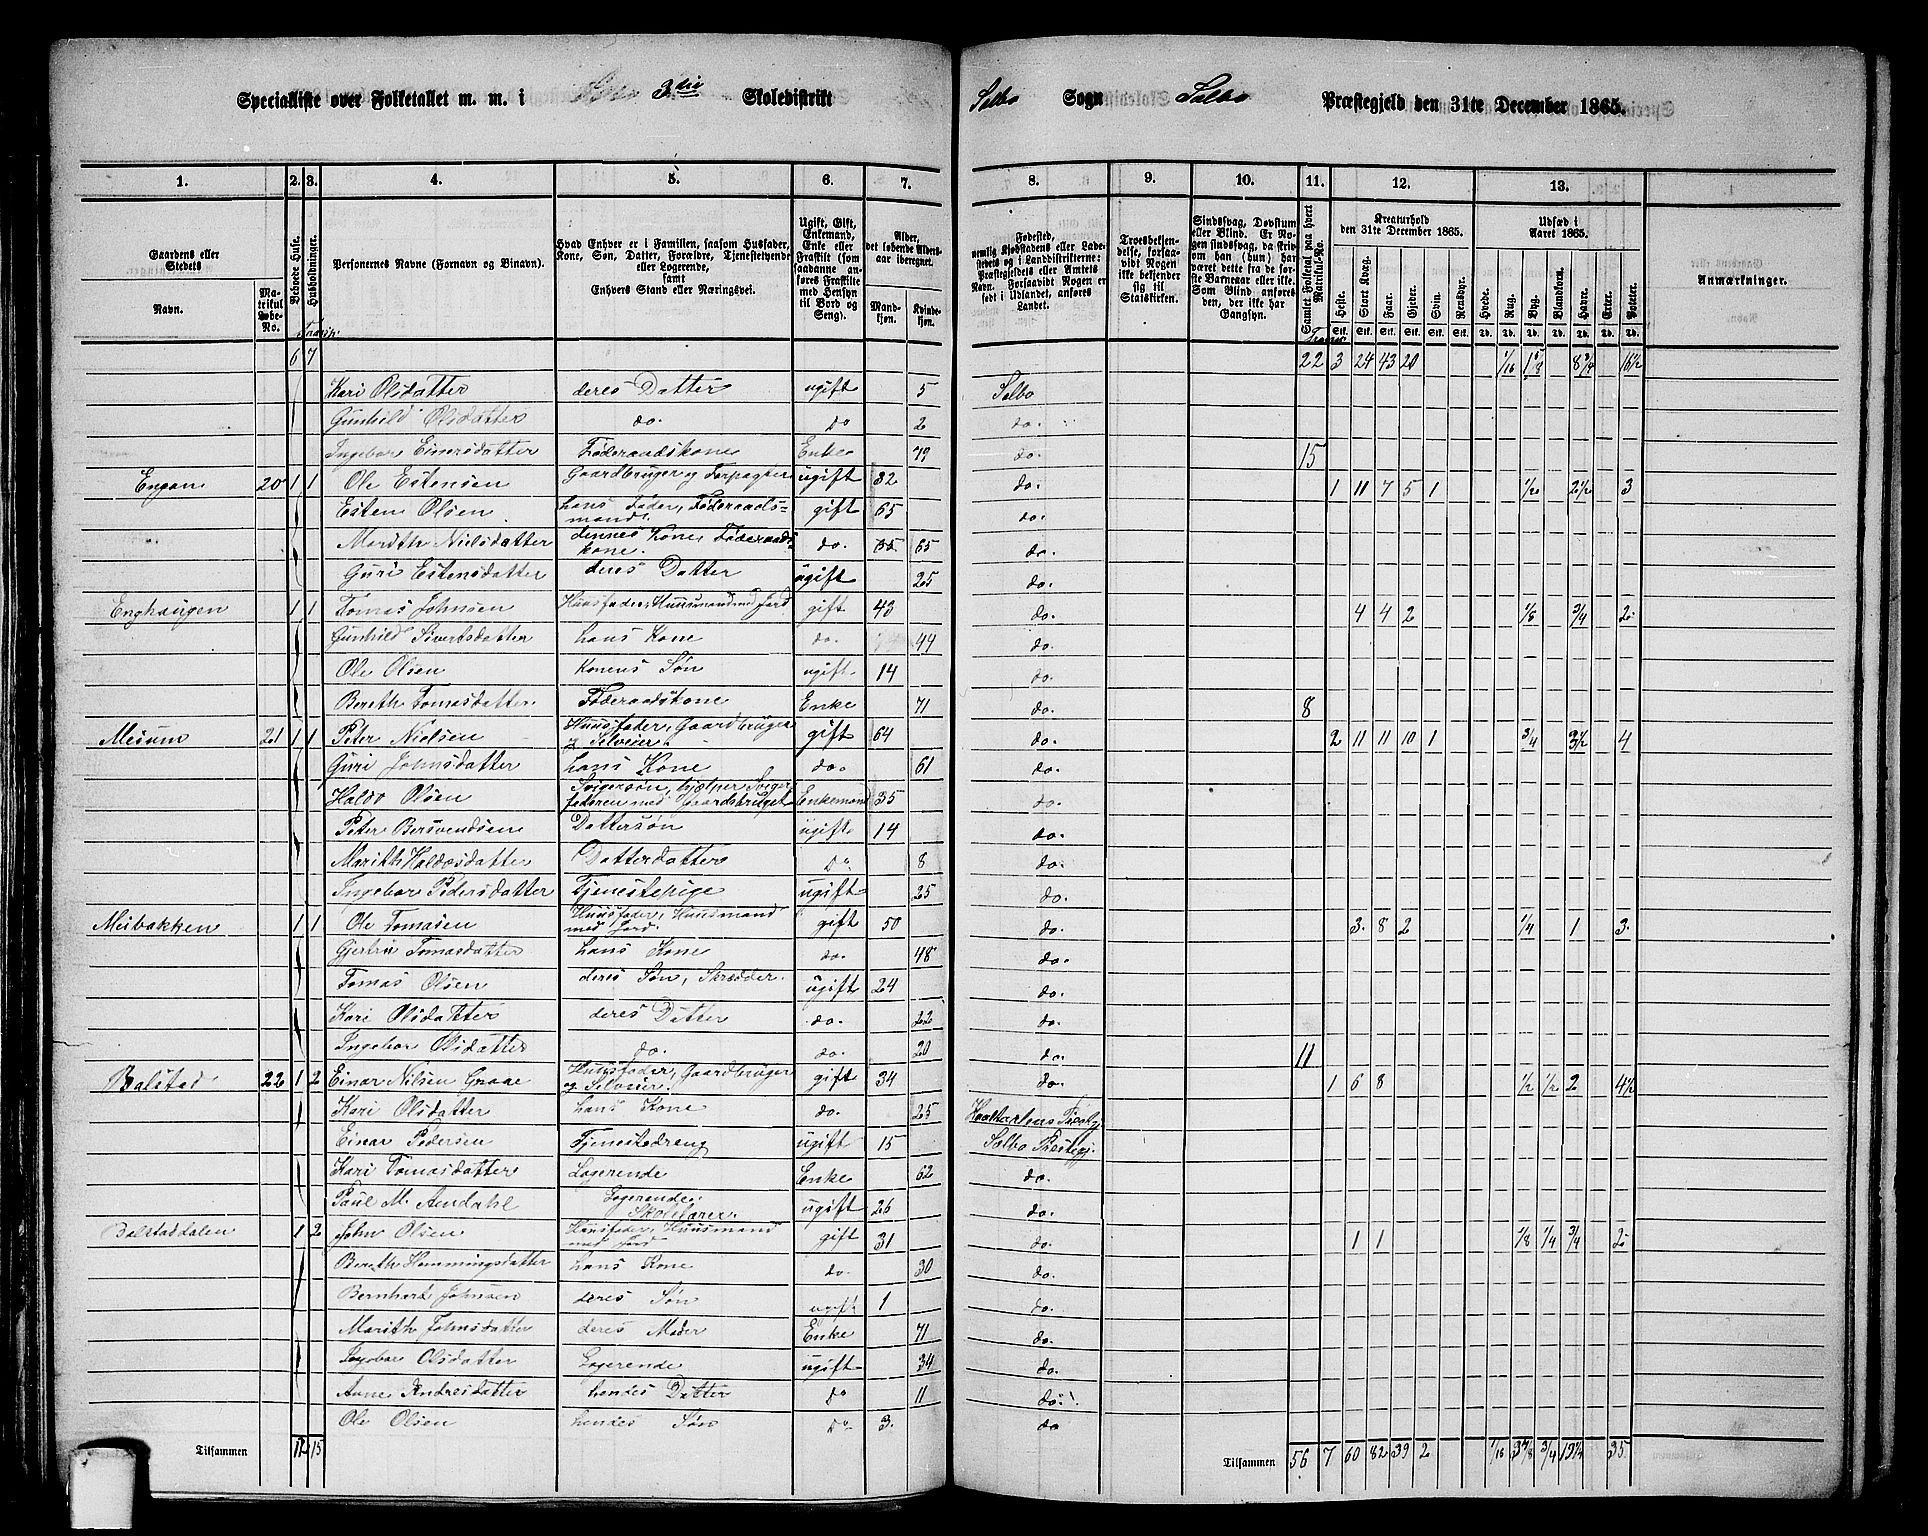 Specialliste over Folketallet m. m. i 3die Skoledistrikt Selbo Sogn Selbo Præstegjeld den 31te December 1865.
1. 2. 3. 4. 5. 6. 7. 8. 9. 10. 11. 12. 13.
Gaardens eller Stedets Navn. Matrikul Løbe-No. Beboede Huse. Husholdninger. Personernes Navne (Fornavn og Binavn).
Hvad Enhver er i Familien, saasom Husfader, Kone, Søn, Datter, Forældre, Tjenestetyende eller Logerende, samt Enhvers Stand eller Næringsvei.
Ugift, Gift, Enkemand, Enke eller Fraskilt (som saadanne anføres Fraskilte med Hensyn til Bord og Seng).
Alder, det løbende Aldersaar iberegnet. Mandkjøn. Kvindekjøn.
Fødested, nemlig Kjøbstadens eller Ladestedets og i Landdistrikterne: Præstegjeldets eller Amtets Navn. Forsaavidt Nogen er født i Udlandet, anføres Landet.
Troesbekjendelse, forsaavidt Nogen ikke bekjender sig til Statskirken.
Sindssvag, Døvstum eller Blind. Er Nogen sindssvag, da skrives, om han (hun) har været dette fra de første Barneaar eller ikke. Som Blind anføres den, der ikke har Gangsyn.
Samlet Folketal paa hvert Matrikul-No.
Kreaturhold den 31te December 1865. Heste. Stort Kvæg. Faar. Gjeder. Svin. Rensdyr.
Udsæd i Aaret 1865. Hvede. Rug. Byg. Blandkorn. Havre. Erter. Poteter.
Anmærkninger.
6 7 22 3 24 43 20 1/16
Kari Olsdatter deres Datter ugift 5 Selbo
Gunhild Olsdatter do. do 2 do.
Ingebor Einersdatter Føderaadskone Enke 79 do. 15
Engan 20 1 1 Ole Estensen Gaardbruger og Forpagter ugift 32 do. 1 11 7 5 1 2 1/2 3
Esten Olsen hans Fader, Føderaadsmand. gift 65 do.
Marith Nielsdatter dennes Kone, Føderaadskone. do. 65 do.
Guri Estensdatter deres Datter ugift 25 do.
Enghaugen 1 1 Tomas Johnsen Huusfader, Huusmand med Jord gift 43 do. 4 4 2 1/8 3/4 2
Gunhild Sivertsdatter hans Kone do. 44 do.
Ole Olsen Konens Søn ugift 14 do.
Bereth Tomasdatter Føderaadskone Enke 71 do. 8
Meium 21 1 1 Peter Nielsen Huusfader, Gaardbruger og Selveier. gift 64 do. 2 11 11 10 1 3/4 3 1/2 4
Guri Johnsdatter hans Kone do. 61 do.
Haldo Olsen Svigersøn, hjælper Svigerfaderen med Gaardsbruget Enkemand 35 do.
Peter Bersvendsen Dattersøn ugift 14 do.
Marith Haldosdatter Datterdatter do 8 do.
Ingebor Pedersdatter Tjenestepige ugift 25 do.
Meibakken 1 1 Ole Tomasen Huusfader, Huusmand med Jord. gift 50 do. 3 8 2 1/4 1 3
Gjertru Tomasdatter hans Kone do. 48 do.
Tomas Olsen deres Søn, Skrædder. ugift 24 do.
Kari Olsdatter deres Datter do. 22 do.
Ingebor Olsdatter do. do. 20 do. 11
Balstad 22 1 2 Einar Nilsen Graae Huusfader, Gaardbruger og Selveier. gift 34 do. 1 6 8 1/2 1/2 2 4 1/2
Kari Olsdatter hans Kone do. 25
Einar Pedersen Tjenestedreng ugift 15 Selbo Præstegj.
Kari Tomasdatter Logerende Enke 62 do.
Paul M. Amdahl Logerende, Skolelærer. ugift 26 do.
Balstaddalen 1 2 John Olsen Huusfader, Huusmand med Jord gift 31 do. 1 1 1/8 1/4 3/4 2
Bereth Hemmingsdatter hans Kone do. 30 do.
Bernhard Johnsen deres Søn ugift 1 do.
Marith Johnsdatter deres Moder Enke 71 do.
Ingebor Olsdatter Logerende ugift 34 do.
Anne Andresdatter hendes Datter do 11 do.
Ole Olsen hendes Søn do 3. do
Tilsammen 12 15 Tilsammen 56 7 60 82 39 2 1/16 3 7/8 3/4 35